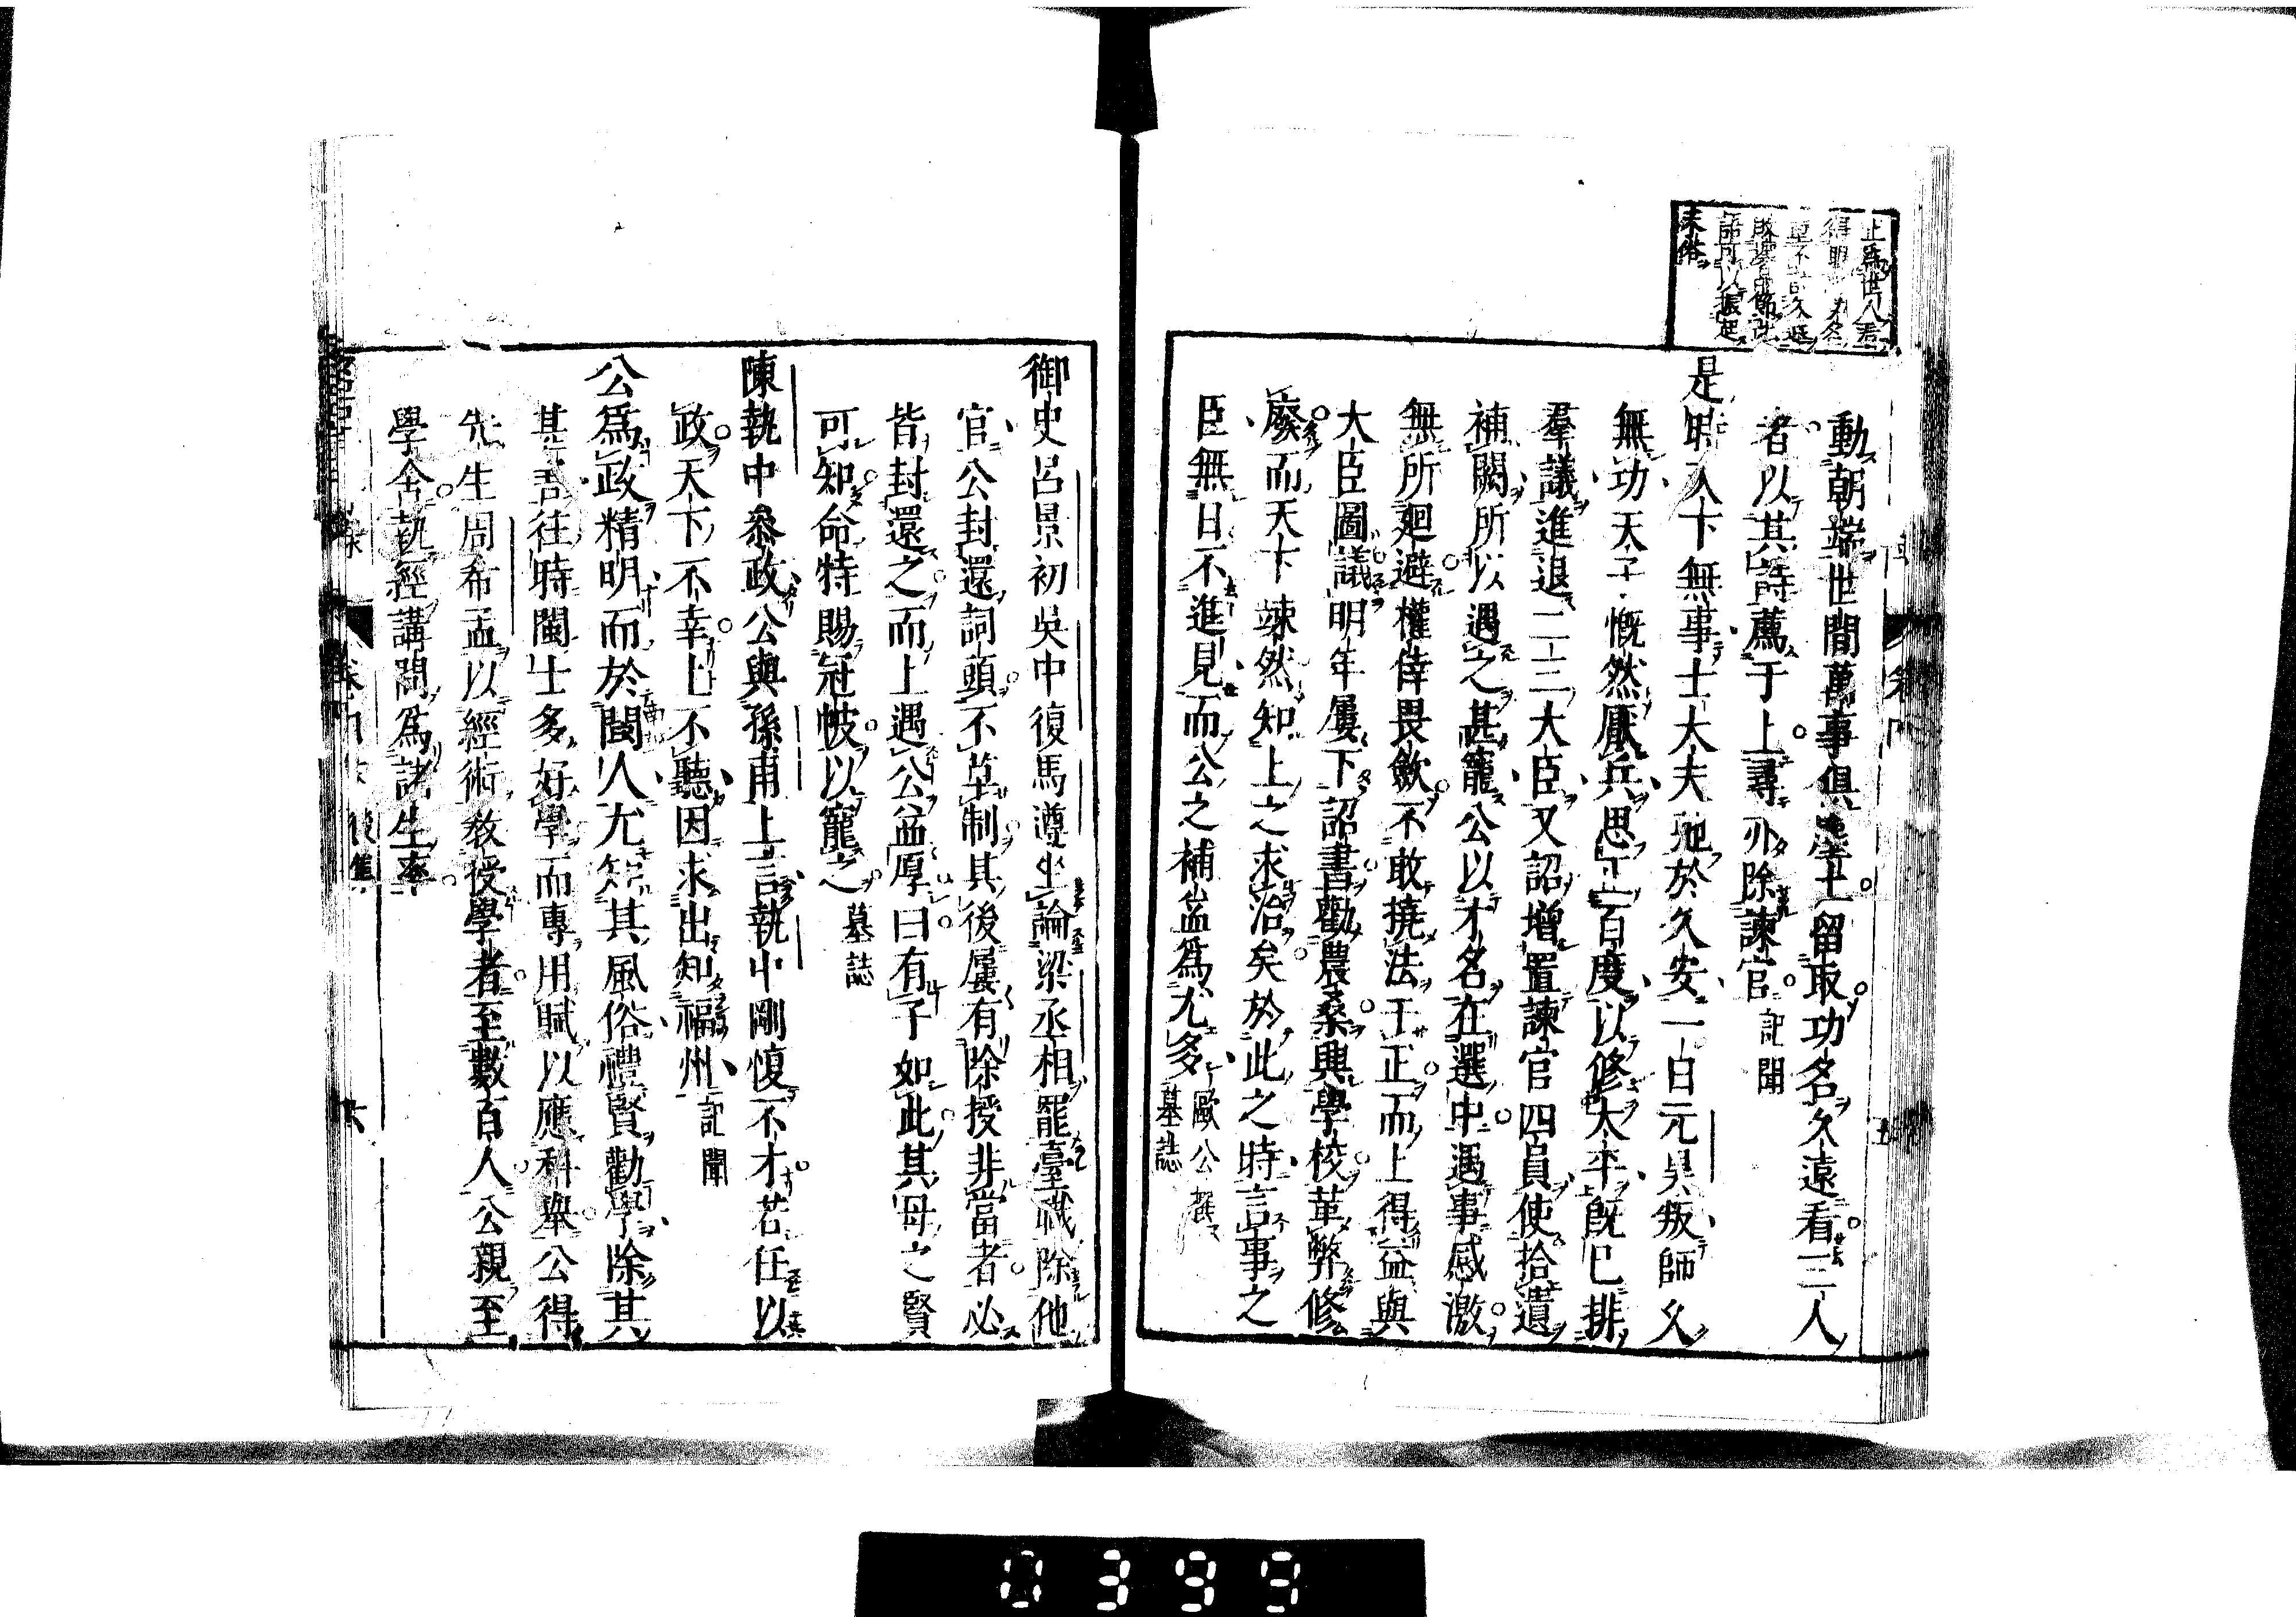 止爲世人看
末俗
動朝端世間萬事俱塵土留取功名久遠看三人
者以其詩薦于上尋亦除諫官記聞
是時天下無事士大夫弛於久安一日元昊叛師久
無功天子慨然厭兵思正百度以修太平既已排
羣議進退二三大臣又詔增置諫官四員使拾遺
補闕所以遇之甚寵公以才名在選中遇事感激
無所廻避權倖畏歛不敢撓法干正而上得益與
大臣圖議明年屢下詔書勸農桑興學校革弊修
廢而天下竦然知上之求治矣於此之時言事之
臣無日不進見而公之補益爲尤多歐公撰墓誌
御史呂景初吳中復馬遵坐論梁丞相罷臺職除他
官公封還詞頭不草制其後屢有除授非當者必
皆封還之而上遇公益厚曰有子如此其母之賢
可知命特賜冠帔以寵之墓誌
陳執中參政公與孫甫上言執中剛愎不才若任以
政天下不幸上不聽因求出知福州記聞
公爲政精明而於閩人尤知其風俗禮賢勸學除其
甚害往時閩士多好學而專用賦以應科舉公得
先生周希孟以經術敎授學者至數百人公親至
學舍執經講問爲諸生率
後集
六
0399